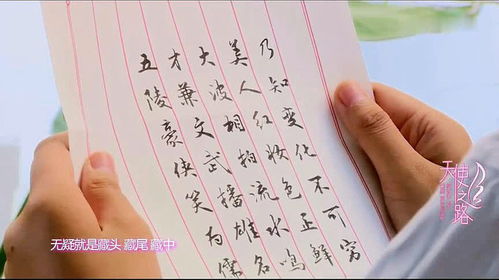 乃知变化不可穷
美人红妆色正鲜
大波相拍流水鸣
才兼文武播雄名
五陵豪侠笑为儒
天使之路
无疑就是藏头 藏尾 藏中